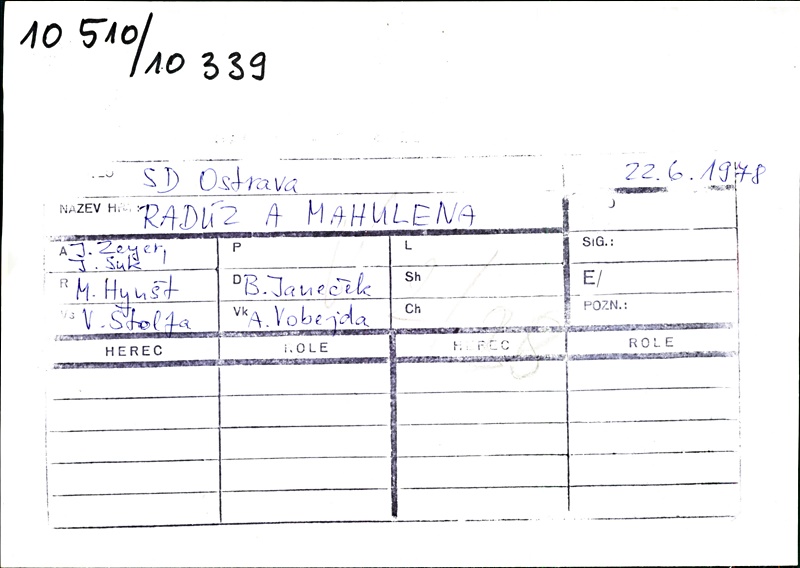 10 510/
10 339
SD Ostrava 22.6.1978
NÁZEV RADÚZ A MAHULENA
A J. Zeyer, P L SIG.:
J. Suk
R M. Hynšt D B. Janeček Sh E/
V. Štolfa Vk A. Vobejda Ch POZN.:
HEREC ROLE HEREC ROLE